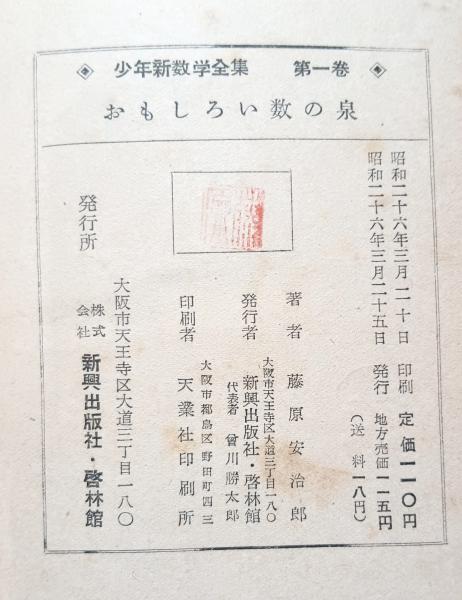 少年新数学全集　第一巻
おもしろい数の泉
昭和二十六年三月二十日　印刷　定価一一〇円
昭和二十六年三月二十五日　発行　地方売価一一五円
（送料一八円）
著者　藤原安治郎
大阪市天王寺区大道三丁目一八〇
発行者　新興出版社・啓林館
代表者　曾川勝太郎
大阪市都島区野田町四三
印刷者　天業社印刷所
大阪市天王寺区大道三丁目一八〇
発行所　株式会社　新興出版社・啓林館